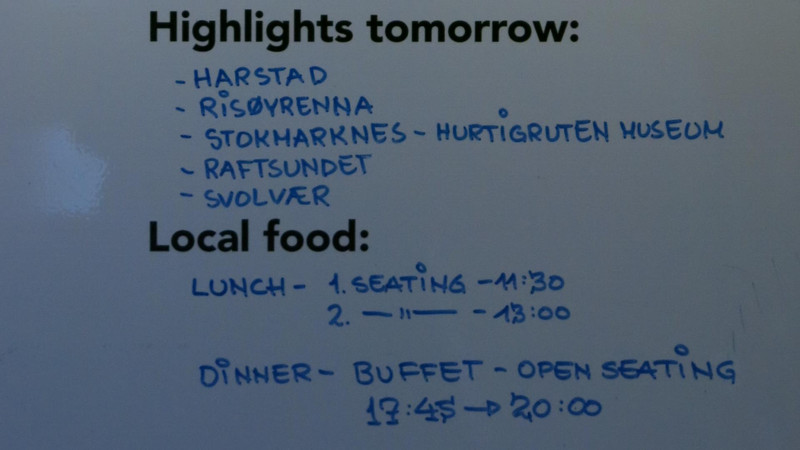 Highlights tomorrow:
- HARSTAD
- RISØYRENNA
- STOKMARKNES - HURTIGRUTEN MUSEUM
- RAFTSUNDET
- SVOLVÆR
Local food:
LUNCH - 1. SEATING - 11:30
2. — " — - 13:00
DINNER - BUFFET - OPEN SEATING
17:45 → 20:00